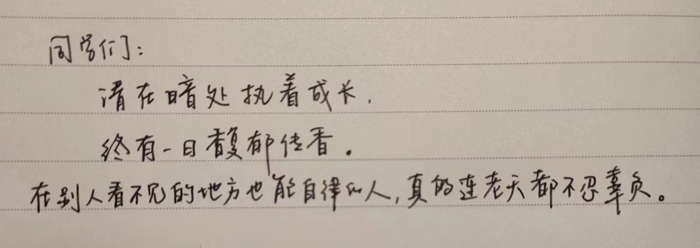 同学们:
请在暗处执着成长,
终有一日馥郁传香。
在别人看不见的地方也能自律的人,真的连老天都不忍辜负。